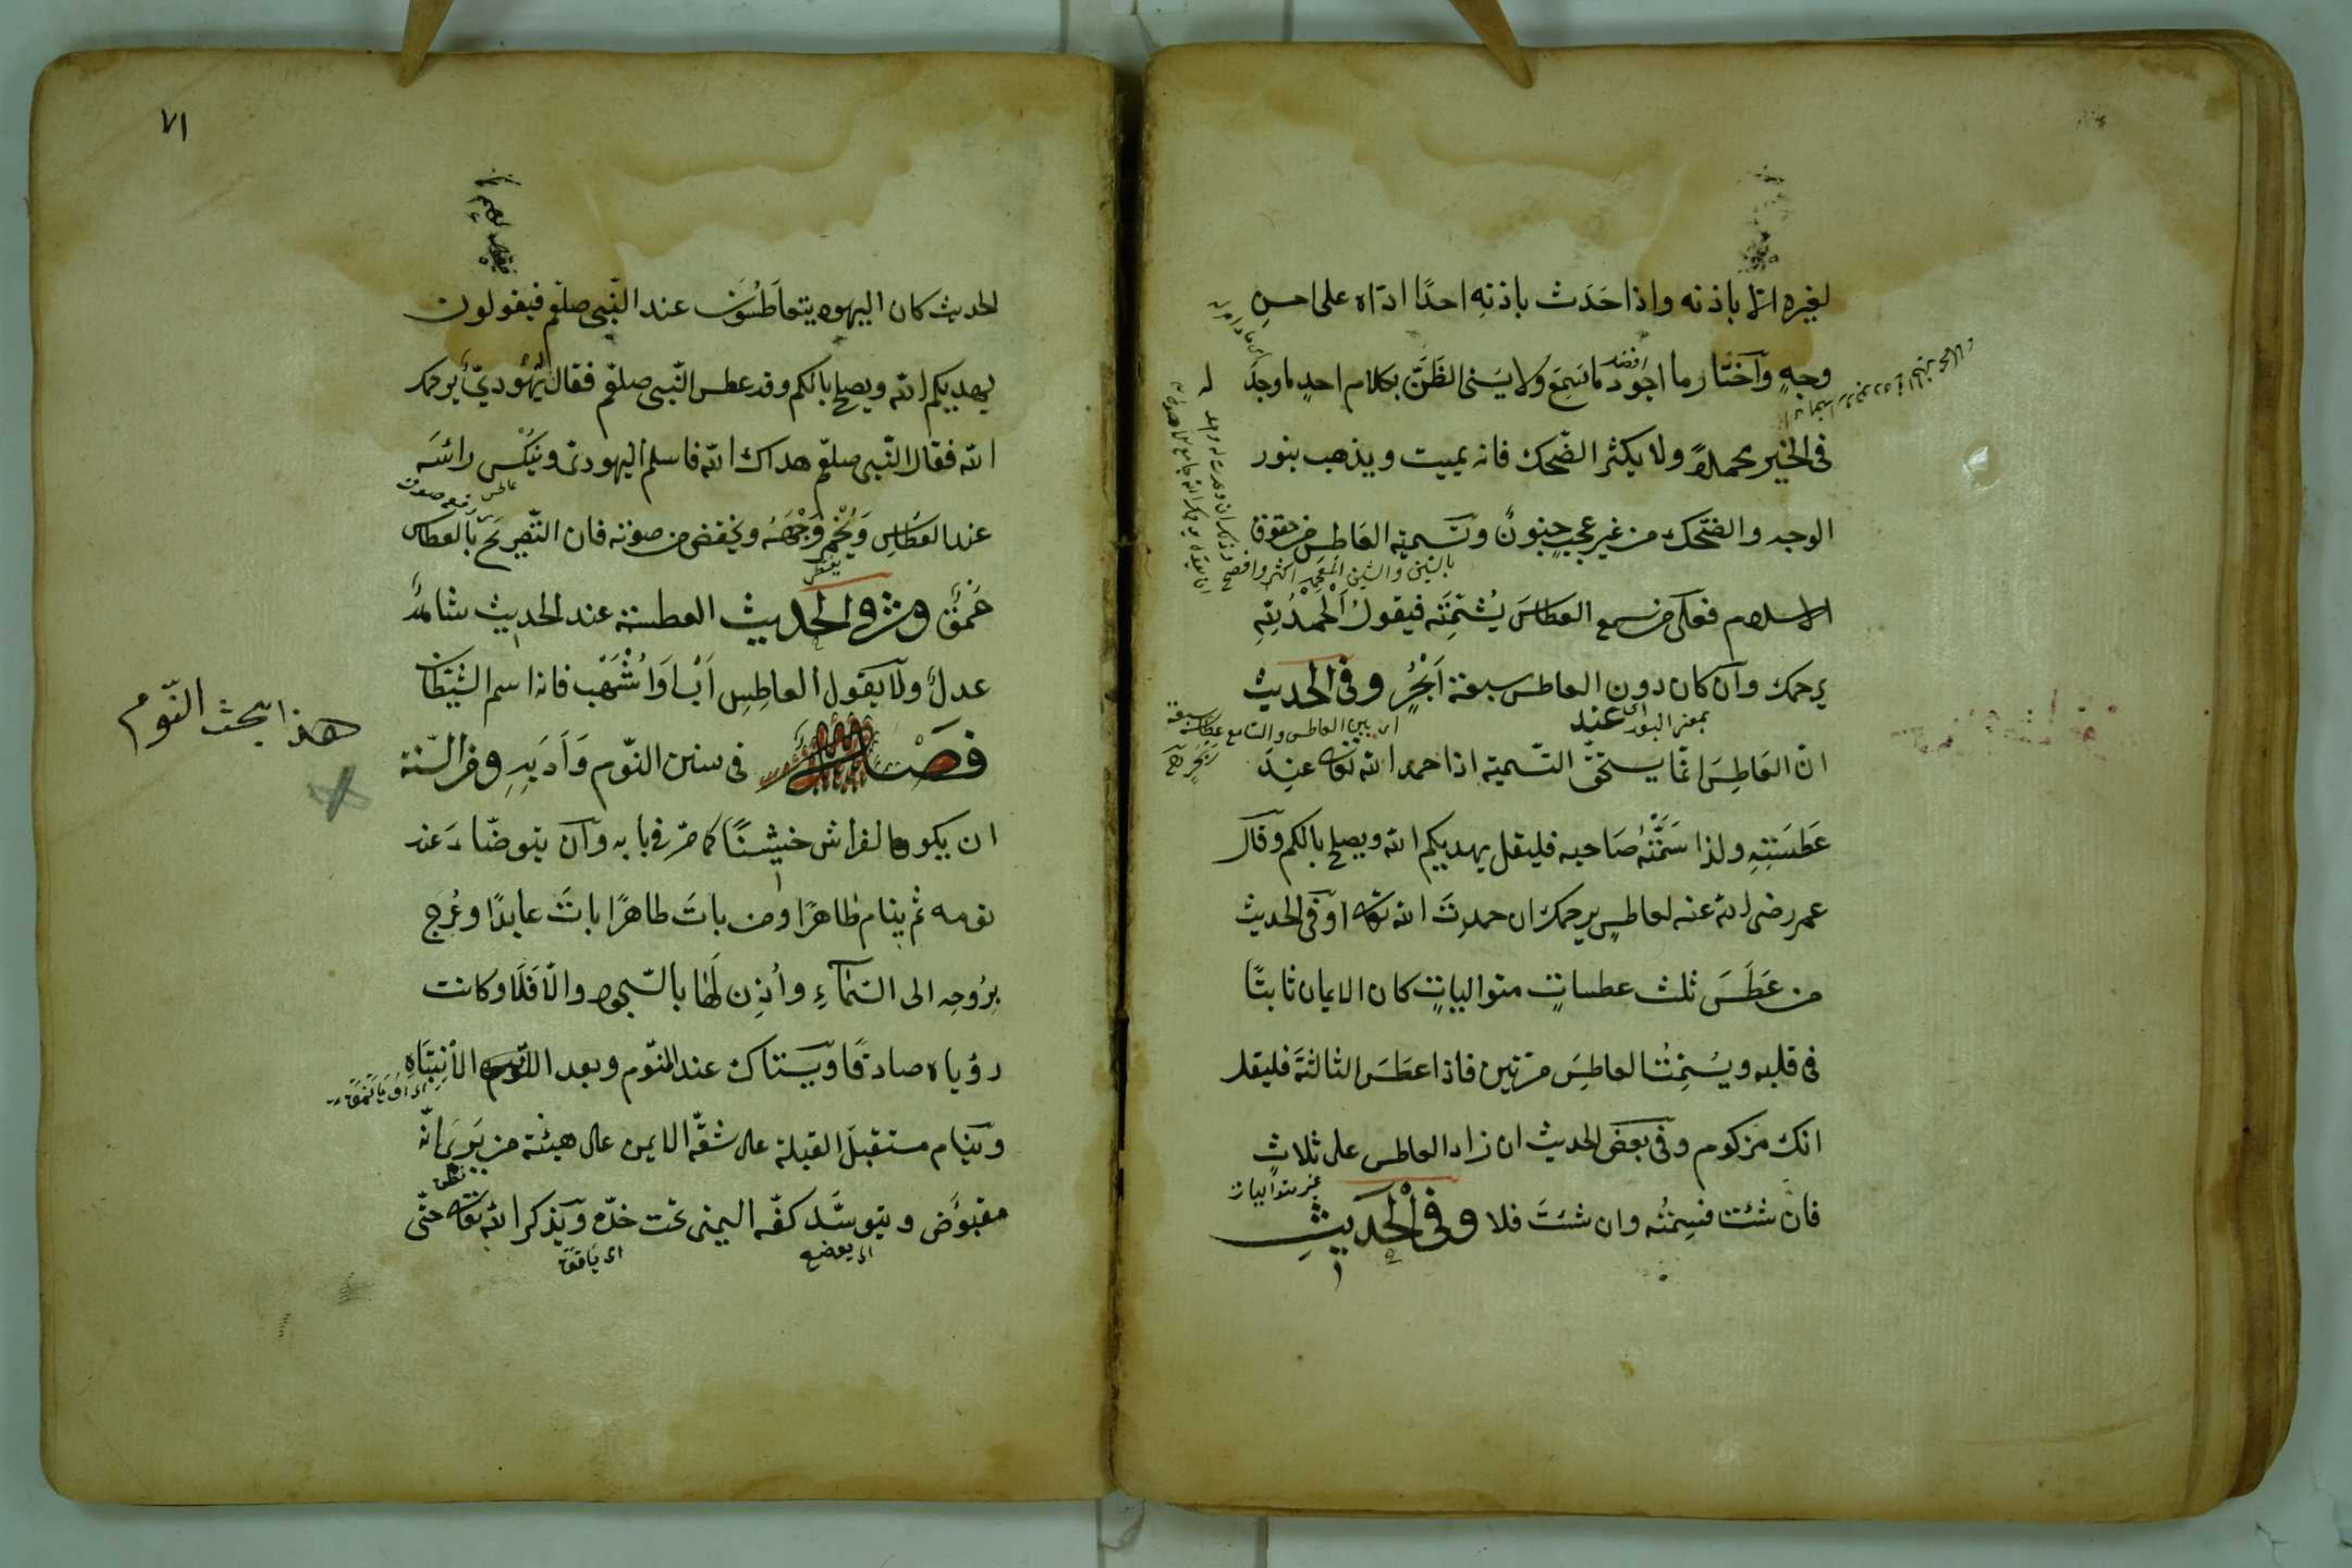 لغيره الا باذنه واذا حَدَث باذنِه احدًا ادّاه على احسنِ
وجهٍ وآختار ما اجود ما سَمِعَ ولا يسَئ الظَنَّ بكلام احدٍ ما وجدَ له
فى الخير محملاً ولا يكثر الضّحك فانه يميت ويذهب بنور
الوجه والضّحك من غير عجبٍ جنونٌ وتسميته العَاطس من حقوق
بالسّين والشين المعجمة اكثر وافصح
الاسلام فعلى من سمع العطاسَ يُشَمّتَه فيقولُ اَلْحَمْدُ لِلّهِ
يرحمك وآن كان دون العاطس سبعة اَبْحُرٍ وفى الحديث
اى بين العاطس والسامع
انّ العَاطِسَ انمّا يستحقّ التّسميته اذا حمد الله تعالى عندَ
عَطسَتِهِ ولذا سَمَّتَهُ صَاحبه فليقل يهديكم الله ويصلح بالكم وقآل
عمر رضى الله عنه لعاطسٍ يرحمك ان حمدتَ الله تعالى وفى الحديث
من عَطَسَ ثلث عطساتٍ متوالياتٍ كان الايمان ثابتًا
فى قلبه ويُشمِّتُ العاطِسَ مرّتين فاذا عطَسَ الثالثةَ فليقل
انك مزكوم وفى بعض الحديث ان زاد العاطس على ثلاثٍ
غير متواليات
فان شئت فسِمتْه وان شئتَ فلا وفى الْحَديثِ
٧١
الحديث كان اليهود يتعاطَسُونَ عند النّبى صلعّم فيقولون
يهديكم الله ويصلح بالكم وقد عطس النّبى صلعّم فقال يَهُوديّ يرحمك
الله فقال النّبى صلعّم هداك الله فاسلم اليهودىّ ونيَكّس رائسَه
عند العَطاسِ وَيُخْمِرُ وَجْهَهُ ويخفض من صوته فان التّصريحَ بالعطاس
حُمقٌ وفى الحديث العطسة عند الحديث شاهدٌ
عدلٌ ولا يقول العاطِس اَبْ اَوْ اُشْهَبْ فانه اسم الشيّطان
هذا بحث النّوم
فصَل فى سنن النّوم وَآدَابِهِ وفى السّنة
ان يكون الفراش خشِنًا كما مرّ فى بابه وآن يتوضّاءَ عند
نومه ثم ينام طاهرًا ومن باتَ طاهرًا باتَ عابدًا وعُرج
برُوحِه الى السّمآءِ واُذِن لَهَا بالسّجود والّا فَلَا وكانت
رؤياه صادقًا ويَستاك عند النّوم وبعد الأنتِبَاهِ
وينام مستقبلَ القبلة على شقّه الايمن على هيئة من يَرى انّه
مقبوُض ويتوسَّد كفّه اليمنى تحت خدّه وَيذكر الله تعالى حتّى
اى يوضع